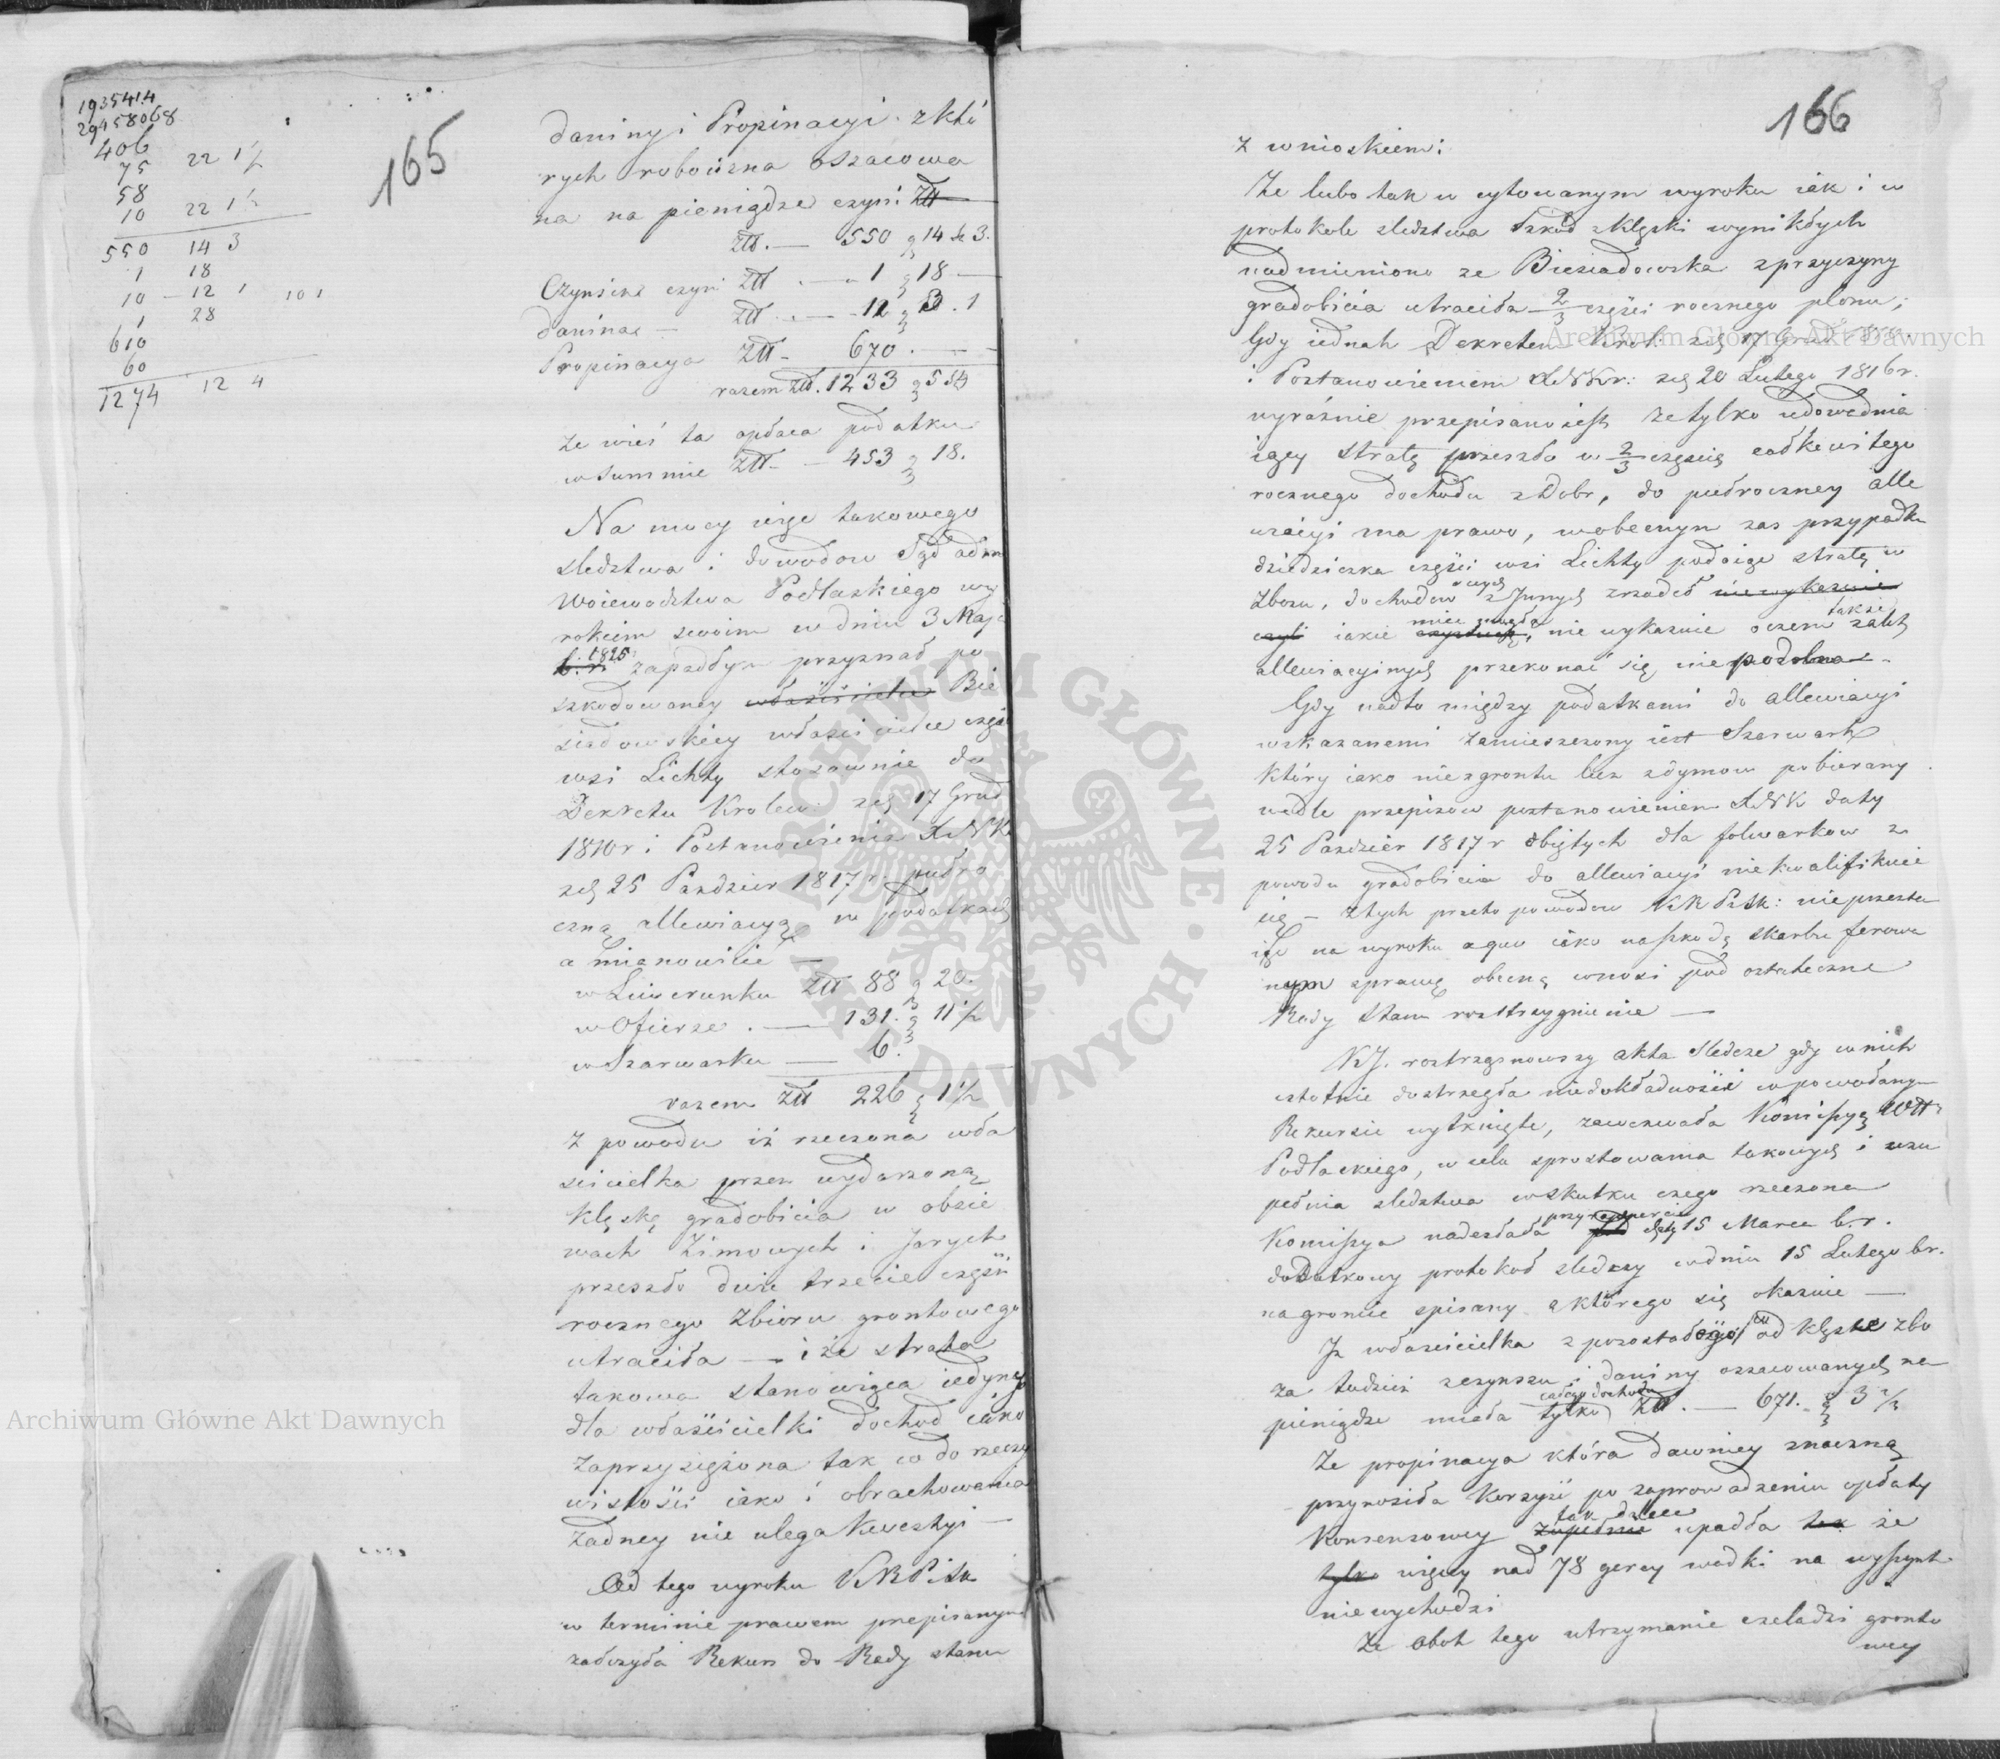 1935414
29458068
406
75 22 1/2
58
10 22 1/2
550 14 3
1 18
10 — 12 1 101
1 28
610
60
1274 12 4
165
daniny i Propinacyi z któ
rych robocizna oszacowa
na na pieniądze czyni Zll
Zll. — 550 g 14 sz 3.
Czynsz czyni Zll . — 1 g 18 —
danina — Zll . — 12 g 3 . 1
Propinacya Zll — 670 . —
razem Zll. 1233 g 5
że wieś ta opłaca podatku
w summie Zll — 453 g 18.
Na mocy więc takowego
sledztwa i dowodow Sąd adm
Woiewodztwa Podlaskiego wy
rokiem swoim w dniu 3 Maja
b. r. 1825 zapadłym przyznał po
szkodowaney właścicielce Bie
siadowskiey właścicielce części
wsi Lichty stosownie do
Dekretu Krolew. zdj 17 Grud
1810 r i Postanowienia XNK
zdj 25 Pazdzier 1817 r. pułro
czną allewiacyą w podatkach
a mianowicie —
w Liwerunku Zll 88 g 20.
w Ofierze . — 131. g 11 1/2
w Szarwarku — 6.
razem Zll 226 g 1 1/2
Z powodu iż rzeczona wła
scicielka przez wydarzoną
klęskę gradobicia w obsie
wach Zimowych i Jarych
przeszło dwie trzecie części
rocznego zbioru gruntowego
utraciła — i że strata
takowa stanowiąca iedyny
dla właścicielki dochod iako
zaprzysiężona tak co do rzeczy
wistości iako i obrachowania
żadney nie ulega kwestyi —
Od tego wyroku KRPiSk
w terminie prawem przepisanym
założyła Rekurs do Rady stanu
166
z wnioskiem:
Że lubo tak w cytowanym wyroku iak i w
protokole sledztwa szkod z klęski wynikłych
nadmieniono że Biesiadowska z przyczyny
gradobicia utraciła 2/3 części rocznego plonu;
Gdy iednak Dekretem Krol. zdj 17 Grud
i Postanowieniem XNKr: zdj 20 Lutego 1816 r.
wyraźnie przepisano iest że tylko udowodnia
iący stratę przeszło w 2/3 częscię całkowitego
rocznego dochodu z Dobr, do pułroczney alle
wiacyi ma prawo, w obecnym zas przypadku
dziedziczka części wsi Lichty podaiąc stratę w
Zbozu, dochodow z innych zrzodeł nie wykazuie
czyli iakie mieć mogła, nie wykazuie oczem także zaległ
allewiacyinych przekonać się nie podobna —
Gdy nadto między podatkami do allewiacyi
wskazanemi zamieszczony iest Szarwark
który iako nie z gruntu lecz z dymow pobierany
wedle przepisow postanowieniem XNK daty
25 Pazdzier 1817 r obiętych dla folwarkow z
powodu gradobicia do allewiacyi nie kwalifikuie
się — z tych przeto powodow KRPSk: nieprzesta
iąc na wyroku a quo iako na szkodę skarbu ferowa
nym sprawę obecną wnosi pod ostateczne
Rady Stanu rozstrzygnienie —
KJ. roztrząsnowszy akta sledcze gdy w nich
istotnie dostrzegła niedokładności w powołanym
Rekursie wytknięte, zawezwała Komissyą Wtt
Podlaskiego, w celu sprostowania takowych i uzu
pełnia sledztwa w skutku czego rzeczona
Komissya nadesłała przy rapporcie daty 15 Marca b. r.
dodatkowy protokoł sledczy w dniu 15 Lutego b r.
na gruncie spisany z którego się okazuie —
Iż właścicielka z pozostałego od klęski zbo
za tudzież z czynszu i daniny oszacowanych na
pieniądze miała tylko całego dochodu Zll. — 671. g 3 1/2
Ze propinacya która dawniey znaczną
przynosiła korzyść po zaprowadzeniu opłaty
Konsensowey zupełnie tak dalece upadła tak że
tylko więcey nad 78 garcy wodki na wyszynk
nie wychodzi
Że obok tego utrzymanie czeladzi grunto
wey
Archiwum Główne Akt Dawnych
Archiwum Główne Akt Dawnych
ARCHIWUM GŁÓWNE AKT DAWNYCH